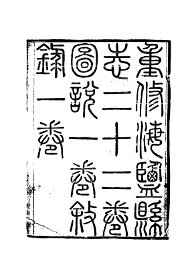 重修海鹽縣
志二十二卷
圖說一卷敘
錄一卷